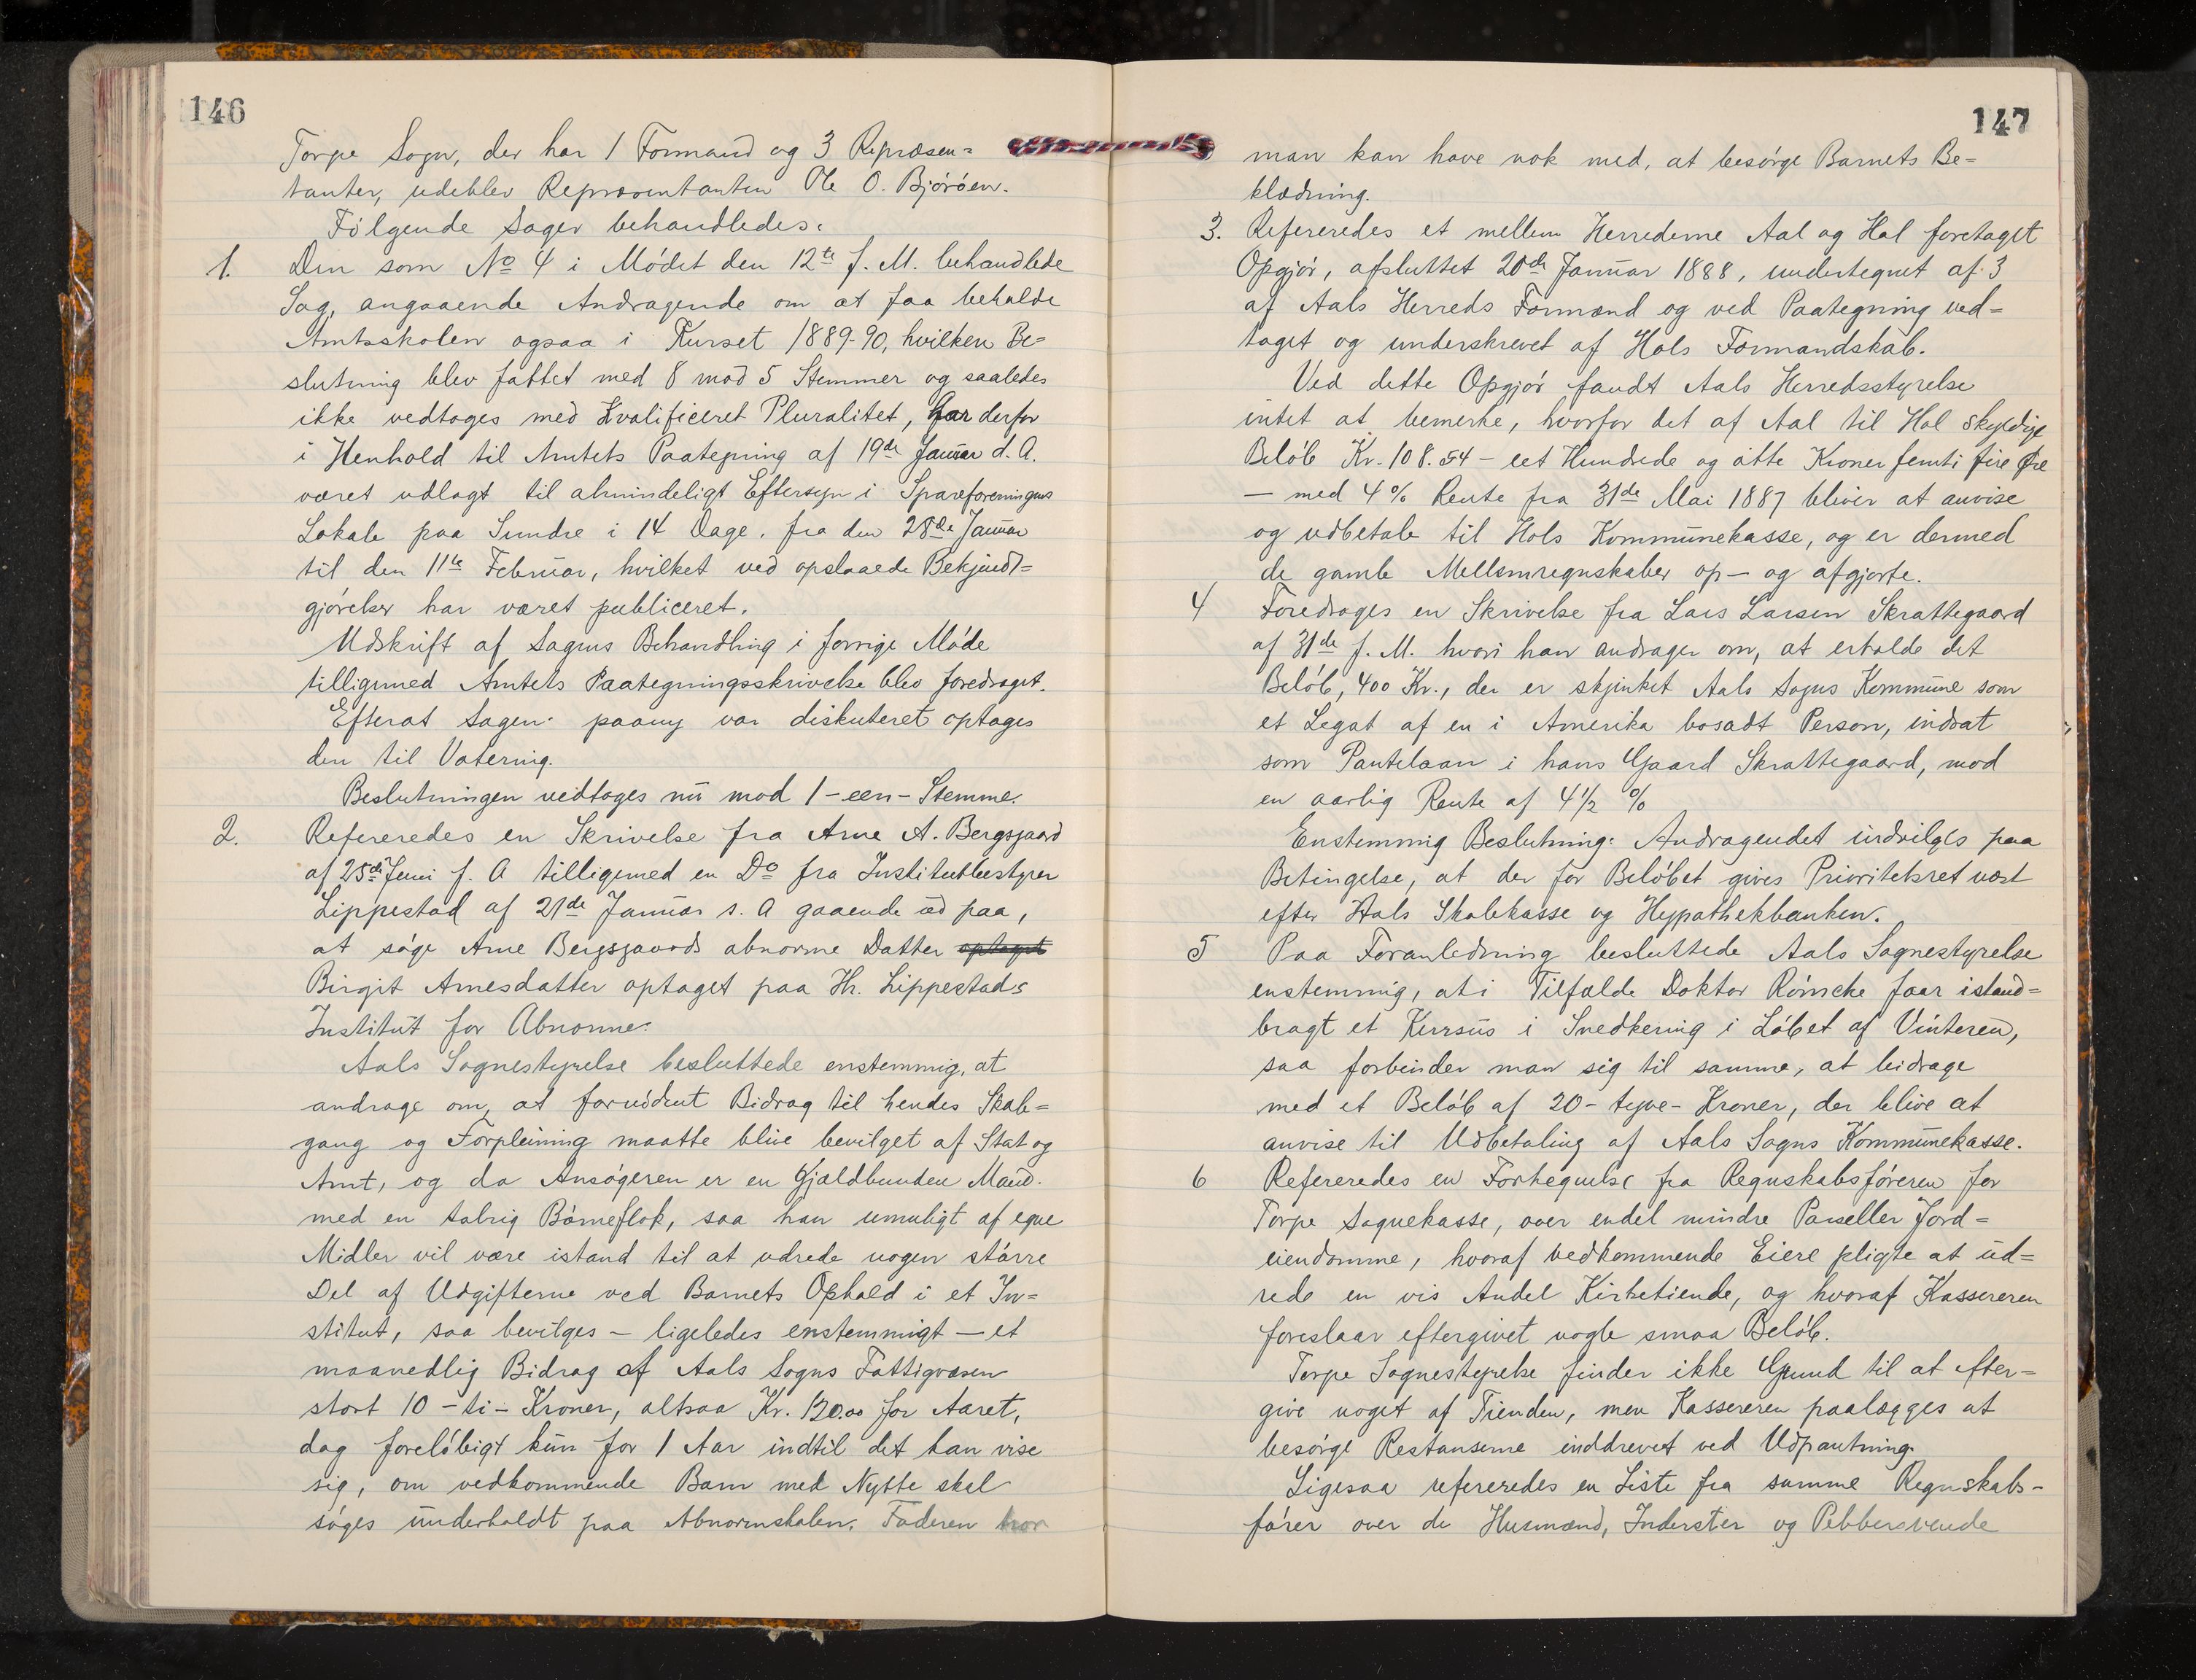 146
Torpe Sogn, der har 1 Formand og 3 Repræsen=
tanter, udeblev Repræsentanten Ole O. Björöen.
Fölgende Sager behandledes:
1. Den som No 4 i Mödet den 12te f. M. behandlede
Sag, angaaende Andragende om at faa beholde
Amtsskolen ogsaa i Kurset 1889-90, hvilken Be=
slutning blev fattet med 8 mod 5 Stemmer og saaledes
ikke vedtoges med Kvalificeret Pluralitet, har derfor
i Henhold til Amtets Paategning af 19de Januar d. A.
været udlagt til almindeligt Eftersyn i Spareforeningens
Lokale paa Sundre i 14 Dage, fra den 28de Januar
til den 11te Februar, hvilket ved opslaaede Bekjendt=
gjörelser har været publiceret.
Udskrift af Sagens Behandling i forrige Möde
tilligemed Amtets Paategningsskrivelse blev foredraget.
Efterat Sagen paany var diskuteret optages
den til Votering.
Beslutningen vedtoges nu mod 1-een-Stemme.
2. Refereredes en Skrivelse fra Arne A. Bergsgaard
af 25de Juni f. A tilligemed en Do fra Institutbestyrer
Lippestad af 21de Januar s. A gaaende ud paa,
at söge Arne Bergsgaards abnorme Datter optaget
Birgit Arnesdatter optaget paa Hr. Lippestads
Institut for Abnorme.
Aals Sognestyrelse besluttede enstemmig, at
andrage om, at fornödent Bidrag til hendes Skole=
gang og Forpleining maatte blive bevilget af Stat og
Amt, og da Ansögeren er en Gjældbunden Mand
med en talrig Börneflok, saa han umuligt af egne
Midler vil være istand til at udrede nogen större
Del af Udgifterne ved Barnets Ophold i et In=
stitut, saa bevilges – ligeledes enstemmigt – et
maanedlig Bidrag af Aals Sogns Fattigvæsen
stort 10 -ti- Kroner, altsaa Kr. 120.00 for Aaret,
dog forelöbigt kun for 1 Aar indtil det kan vise
sig, om vedkommende Barn med Nytte skal
söges underholdt paa Abnormskolen. Faderen tror
147
man kan have nok med, at besörge Barnets Be=
klædning.
3. Refereredes et mellem Herrederne Aal og Hol foretaget
Opgjör, afsluttet 20de Januar 1888, undertegnet af 3
af Aals Herreds Formænd og ved Paategning ved=
taget og underskrevet af Hols Formandskab.
Ved dette Opgjör fandt Aals Herredsstyrelse
intet at bemerke, hvorfor det af Aal til Hol skyldige
Belöb Kr. 108.54 – eet Hundrede og otte Kroner femti fire Öre
– med 4% Rente fra 31de Mai 1887 bliver at anvise
og udbetale til Hols Kommunekasse, og er dermed
de gamle Mellemregnskaber op– og afgjorte.
4 Foredroges en Skrivelse fra Lars Larsen Skrattegaard
af 31de f. M. hvori han andrager om, at erholde det
Belöb, 400 Kr., der er skjænket Aals Sogns Kommune som
et Legat af en i Amerika bosadt Person, indsat
som Pantelaan i hans Gaard Skrattegaard, mod
en aarlig Rente af 4½ %
Enstemmig Beslutning: Andragendet indvilges paa
Betingelse, at der for Belöbet gives Prioritetsret næst
efter Aals Skolekasse og Hypothekbanken.
5 Paa Foranledning besluttede Aals Sognestyrelse
enstemmig, at i Tilfælde Doktor Römcke faar istand=
bragt et Kursus i Snedkering i Löbet af Vinteren,
saa forbinder man sig til samme, at bidrage
med et Belöb af 20- tyve- Kroner, der blive at
anvise til Udbetaling af Aals Sogns Kommunekasse.
6 Refereredes en Fortegnelse fra Regnskabsföreren for
Torpe Sognekasse, over endel mindre Parseller Jord=
eiendomme, hvoraf vedkommende Eiere pligte at ud=
rede en vis Andel Kirketiende, og hvoraf Kassereren
foreslaar eftergivet nogle smaa Belöb.
Torpe Sognestyrelse finder ikke Grund til at efter=
give noget af Tienden, men Kassereren paalægges at
besörge Restanserne inddrevet ved Udpantning.
Ligesaa refereredes en Liste fra samme Regnskabs-
förer over de Husmænd, Inderster og Pebbersvende